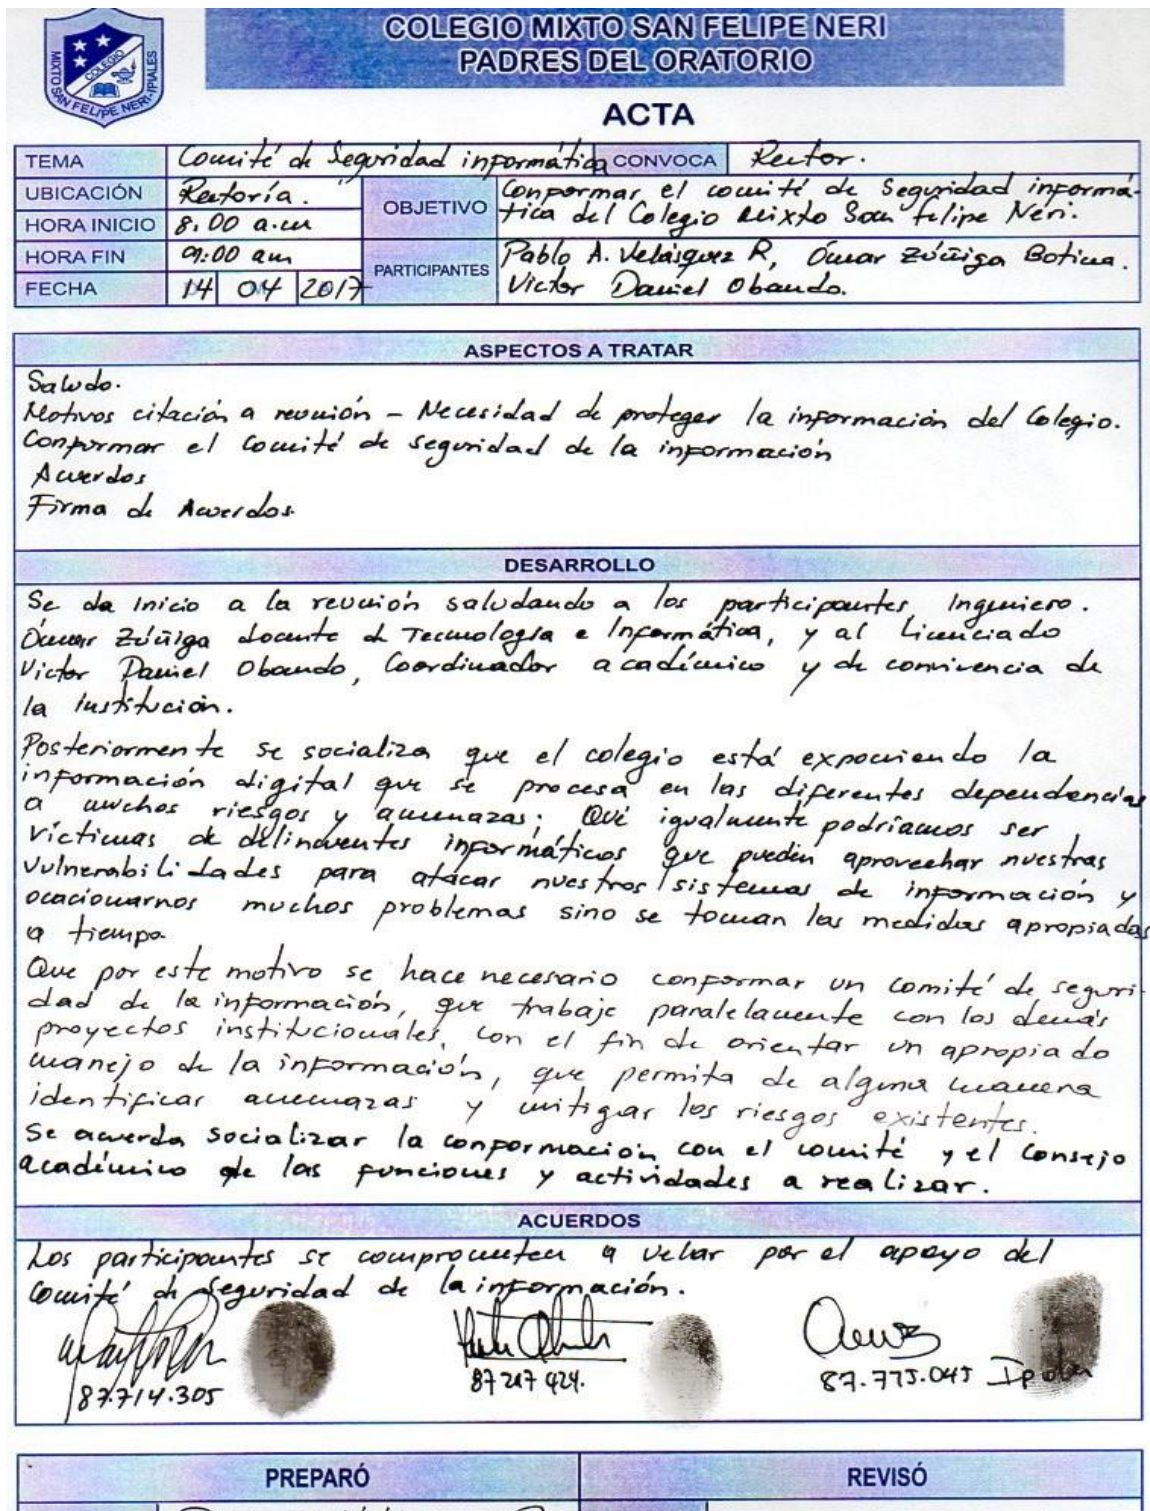 COLEGIO MIXTO SAN FELIPE NERI
PADRES DEL ORATORIO
COLEGIO
MIXTO SAN FELIPE NERI-IPIALES
ACTA
TEMA Comité de Seguridad informática CONVOCA Rector.
UBICACIÓN Rectoría.
OBJETIVO Conformar el comité de Seguridad informá-
tica del Colegio Mixto San Felipe Neri.
HORA INICIO 8:00 a.m
HORA FIN 09:00 am
PARTICIPANTES Pablo A. Velásquez R, Ómar Zúñiga Botina.
Victor Daniel Obando.
FECHA 14 04 2017
ASPECTOS A TRATAR
Saludo.
Motivos citación a reunión - Necesidad de proteger la información del Colegio.
Conformar el comité de seguridad de la información
Acuerdos
Firma de Acuerdos.
DESARROLLO
Se da inicio a la reunión saludando a los participantes, Ingeniero.
Ómar Zúñiga docente de Tecnología e Informática, y al Licenciado
Victor Daniel Obando, Coordinador académico y de convivencia de
la Institución.
Posteriormente se socializa que el colegio está exponiendo la
información digital que se procesa en las diferentes dependencias
a muchos riesgos y amenazas; Qué igualmente podríamos ser
víctimas de delincuentes informáticos que pueden aprovechar nuestras
vulnerabilidades para atacar nuestros sistemas de información y
ocacionarnos muchos problemas sino se toman las medidas apropiadas
a tiempo.
Que por este motivo se hace necesario conformar un comité de seguri-
dad de la información, que trabaje paralelamente con los demás
proyectos institucionales, con el fin de orientar un apropiado
manejo de la información, que permita de alguna manera
identificar amenazas y mitigar los riesgos existentes.
Se acuerda socializar la conformación con el comité y el Consejo
académico de las funciones y actividades a realizar.
ACUERDOS
Los participantes se comprometen a velar por el apoyo del
Comité de Seguridad de la información.
87.714.305
87 247 424.
87.775.045
PREPARÓ
REVISÓ